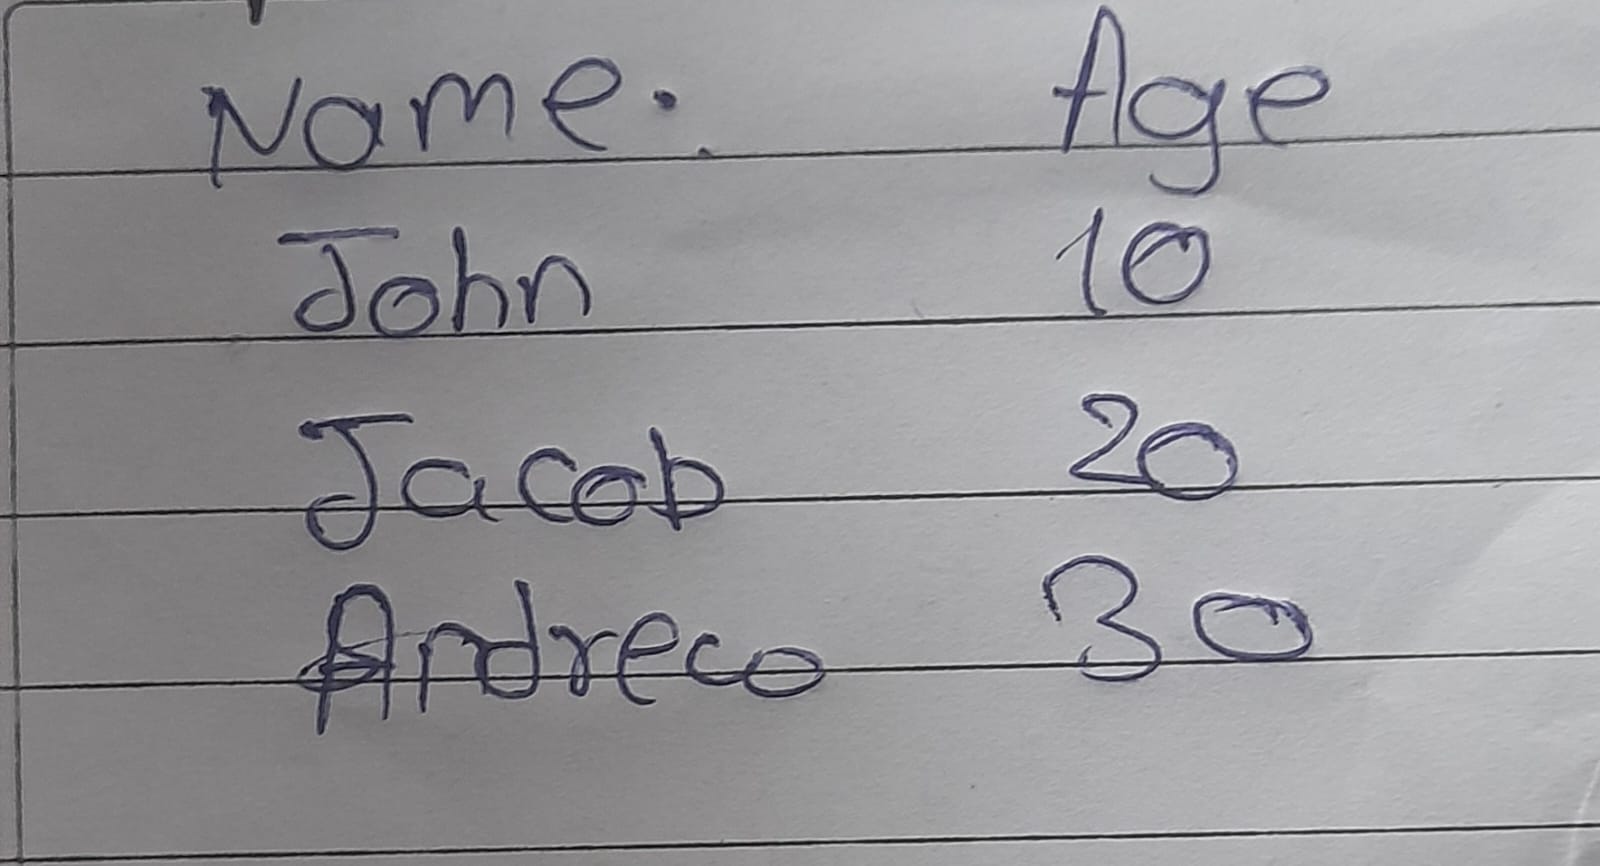 Name. Age
John 10
Jacob 20
Andreco 30